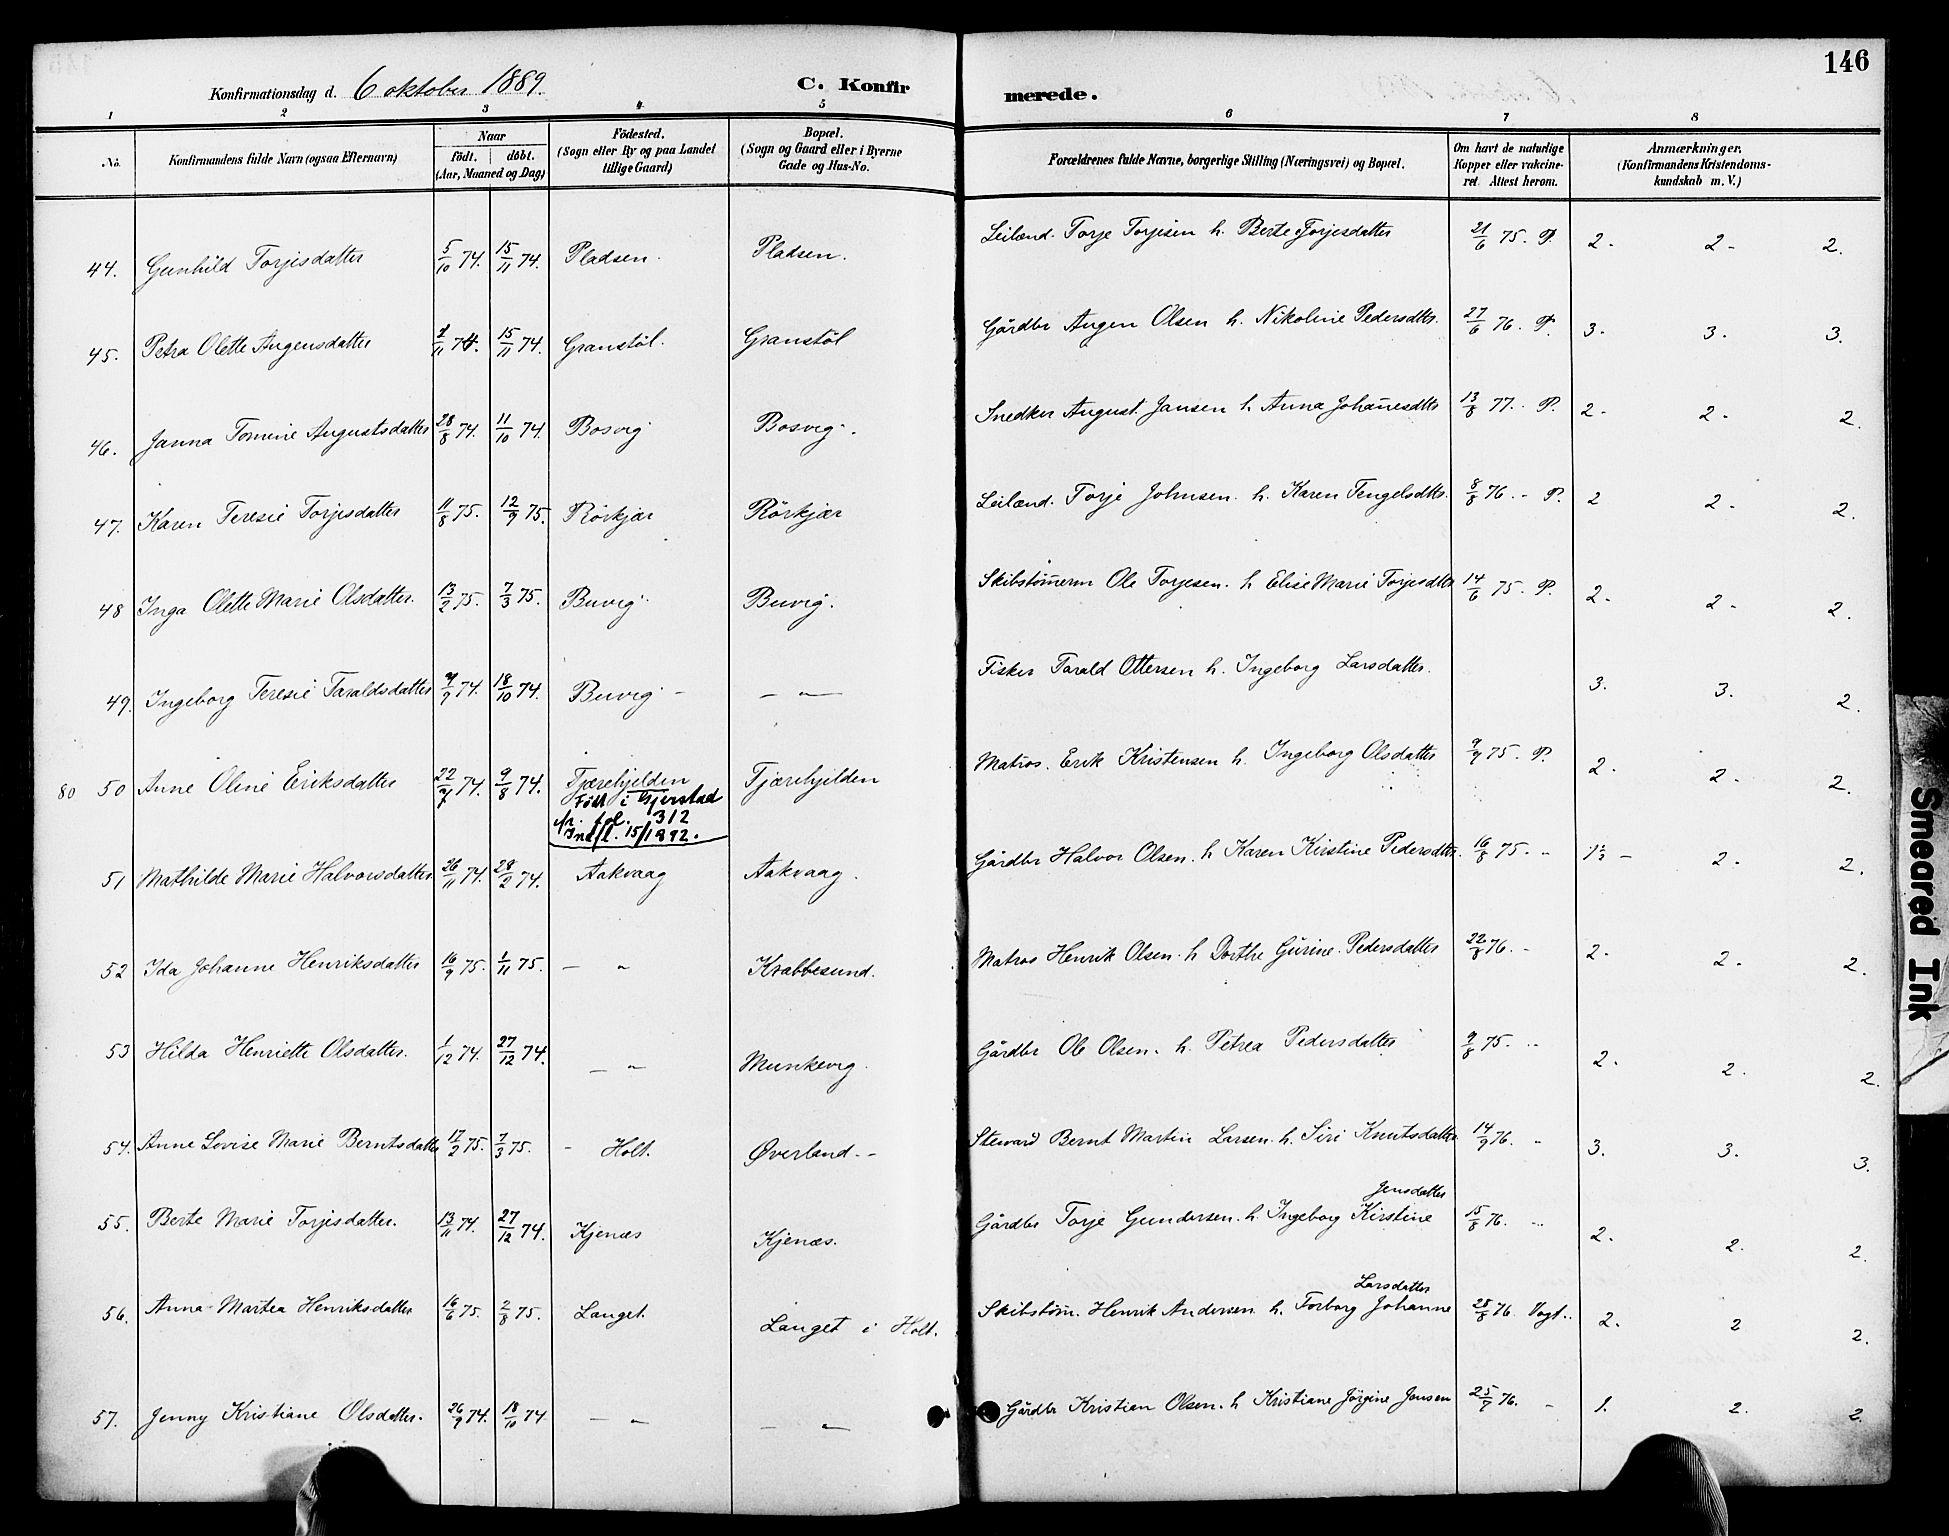 146
Konfirmationsdag d. 6 oktober 1889.
C. Konfirmerede.
1 2 3 4 5 6 7 8
No.
Konfirmandens fulde Navn (ogsaa Efternavn)
Naar
født. døbt.
(Aar, Maaned og Dag)
Fødested.
(Sogn eller By og paa Landet
tillige Gaard)
Bopæl.
(Sogn og Gaard eller i Byerne
Gade og Hus-No.
Forældrenes fulde Navne, borgerlige Stilling (Næringsvei) og Bopæl.
Om havt de naturlige
Kopper eller vakcine-
ret. Attest herom.
Anmærkninger.
(Konfirmandens Kristendoms-
kundskab m. V.)
44. Gunhild Torjesdatter 5/10 74. 15/11 74. Pladsen. Pladsen. Leilænd. Torje Torjesen h. Berte Torjesdatter 21/6 75. P. 2. 2. 2.
45. Petra Olette Augensdatter 1/11 74. 15/11 74. Granstöl. Granstöl Gårdbr Augen Olsen h. Nikoline Pedersdtr. 27/6 76. P. 3. 3. 3.
46. Janna Tomine Augustsdatter 28/8 74. 11/10 74. Bosvig Bosvig. Snedker August Jansen h. Anna Johañesdtr 13/8 77. P. 2. 2. 2.
47. Karen Teresie Torjesdatter 11/8 75. 12/9 75. Rörkjær Rörkjær Leilænd. Torje Johnsen. h. Karen Tengelsdtr. 8/8 76. - P. 2 2. 2.
48 Inga Olette Marie Olsdatter. 13/2 75. 7/3 75. Buvig Buvig. Skibstömerm Ole Torjesen. h Elise Marie Torjesdtr 14/6 75 P. 2. 2. 2.
49. Ingeborg Teresie Taraldsdatter 9/9 74. 18/10 74. Buvig - — " — Fisker Tarald Ottersen h. Ingeborg Larsdatter. 3. 3. 2.
80 50 Anne Oline Eriksdatter 22/7 74. 9/8 74. Tjærehjelden Tjærehjelden Matros. Erik Kristensen h. Ingeborg Olsdatter 9/9 75. P. 2. 2. 2.
Født i Gjerstad
Nr. fol. 312
Indfl. 15/1 892.
51 Mathilde Marie Halvorsdatter. 26/11 74. 28/2 74. Aakvaag Aakvaag. Gårdbr Halvor Olsen. h Karen Kirstine Pedersdtr. 16/8 75. " 1½ — 2. 2.
52 Ida Johanne Henriksdatter 16/9 75. 1/11 75. — " Krabbesund. Matros Henrik Olsen. h Dorthe Gurine Pedersdatter 22/8 76. - 2. 2. 2.
53 Hilda Henriette Olsdatter. 1/12 74. 27/12 74. — " Munkevig. Gårdbr Ole Olsen. h. Petrea Pedersdatter 9/8 75. " 2. 2. 2.
54. Anne Lovise Marie Berntsdatter 17/2 75. 7/3 75. - Holt. Øverland. - Steward Bernt Martin Larsen. h. Siri Knutsdatter 14/9 76. " 3. 3. 3.
55. Berte Marie Torjesdatter. 13/11 74. 27/12 74. Kjenæs Kjenæs. Gårdbr Torje Gundersen. h. Ingeborg Kirstine Jensdatter 15/8 76. " 2. 2. 2.
56. Anna Martea Henriksdatter 16/6 75. 2/8 75. Langet. Langet i Holt. Skibstöm. Henrik Andersen h. Torborg Johanne Larsdatter 28/8 76. Vogt. 2. 2 2.
57. Jenny Kristiane Olsdatter. 26/9 74. 18/10 74 — " — — " — Gårdbr Kristian Olsen. h Kristiane Jörgine Jensen 25/7 76. - 1. 2. 2.
Smeared Ink